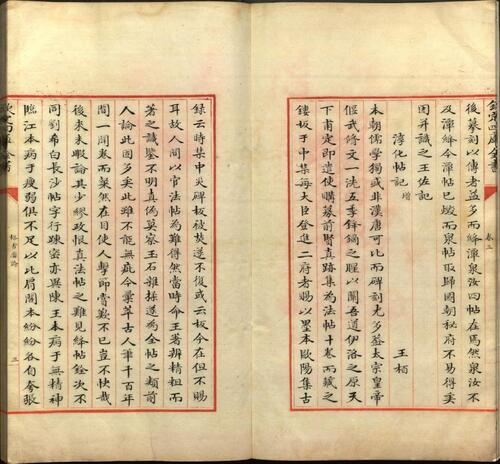 欽定四庫全書
卷五
後摹刻以傳者益多而絳然潭泉汝四帖在然泉汝不
及潭絳今潭帖已燬而泉帖取歸國朝秘府不易得矣
因并識之王佐記
淳化帖記增
王栢
本朝儒學獨或非漢唐可比而碑刻尤多葢太宗皇帝
偃武修文一洗五季鋒鏑之腥以闡吾道伊洛之原天
下甫定即遣使購摹前賢真跡集為法帖十卷而藏之
鏤板于中集每大臣登進二府者賜以墨本歐陽集古
錄云時集中災碑板被焚遂不復或云板今在但不賜
耳故人間以官法帖為難得然當時命王著辨精粗而
著之識鑒不明真偽莫察玉石雜揉遂為全帖之纇前
人論此固多矣此雖不能無疵今彙萃古人筆千百年
間一開卷而粲然在目使人擊節賞歎不已豈不快哉
後來未暇論其少繆政恨真法帖之難見絳帖銓次不
同劉希白長沙帖字行疎密亦異陳王本病于無精神
臨江本病于瘦弱俱不足以比肩閣本紛紛各自夸張
欽定四庫全書
格古要論
三